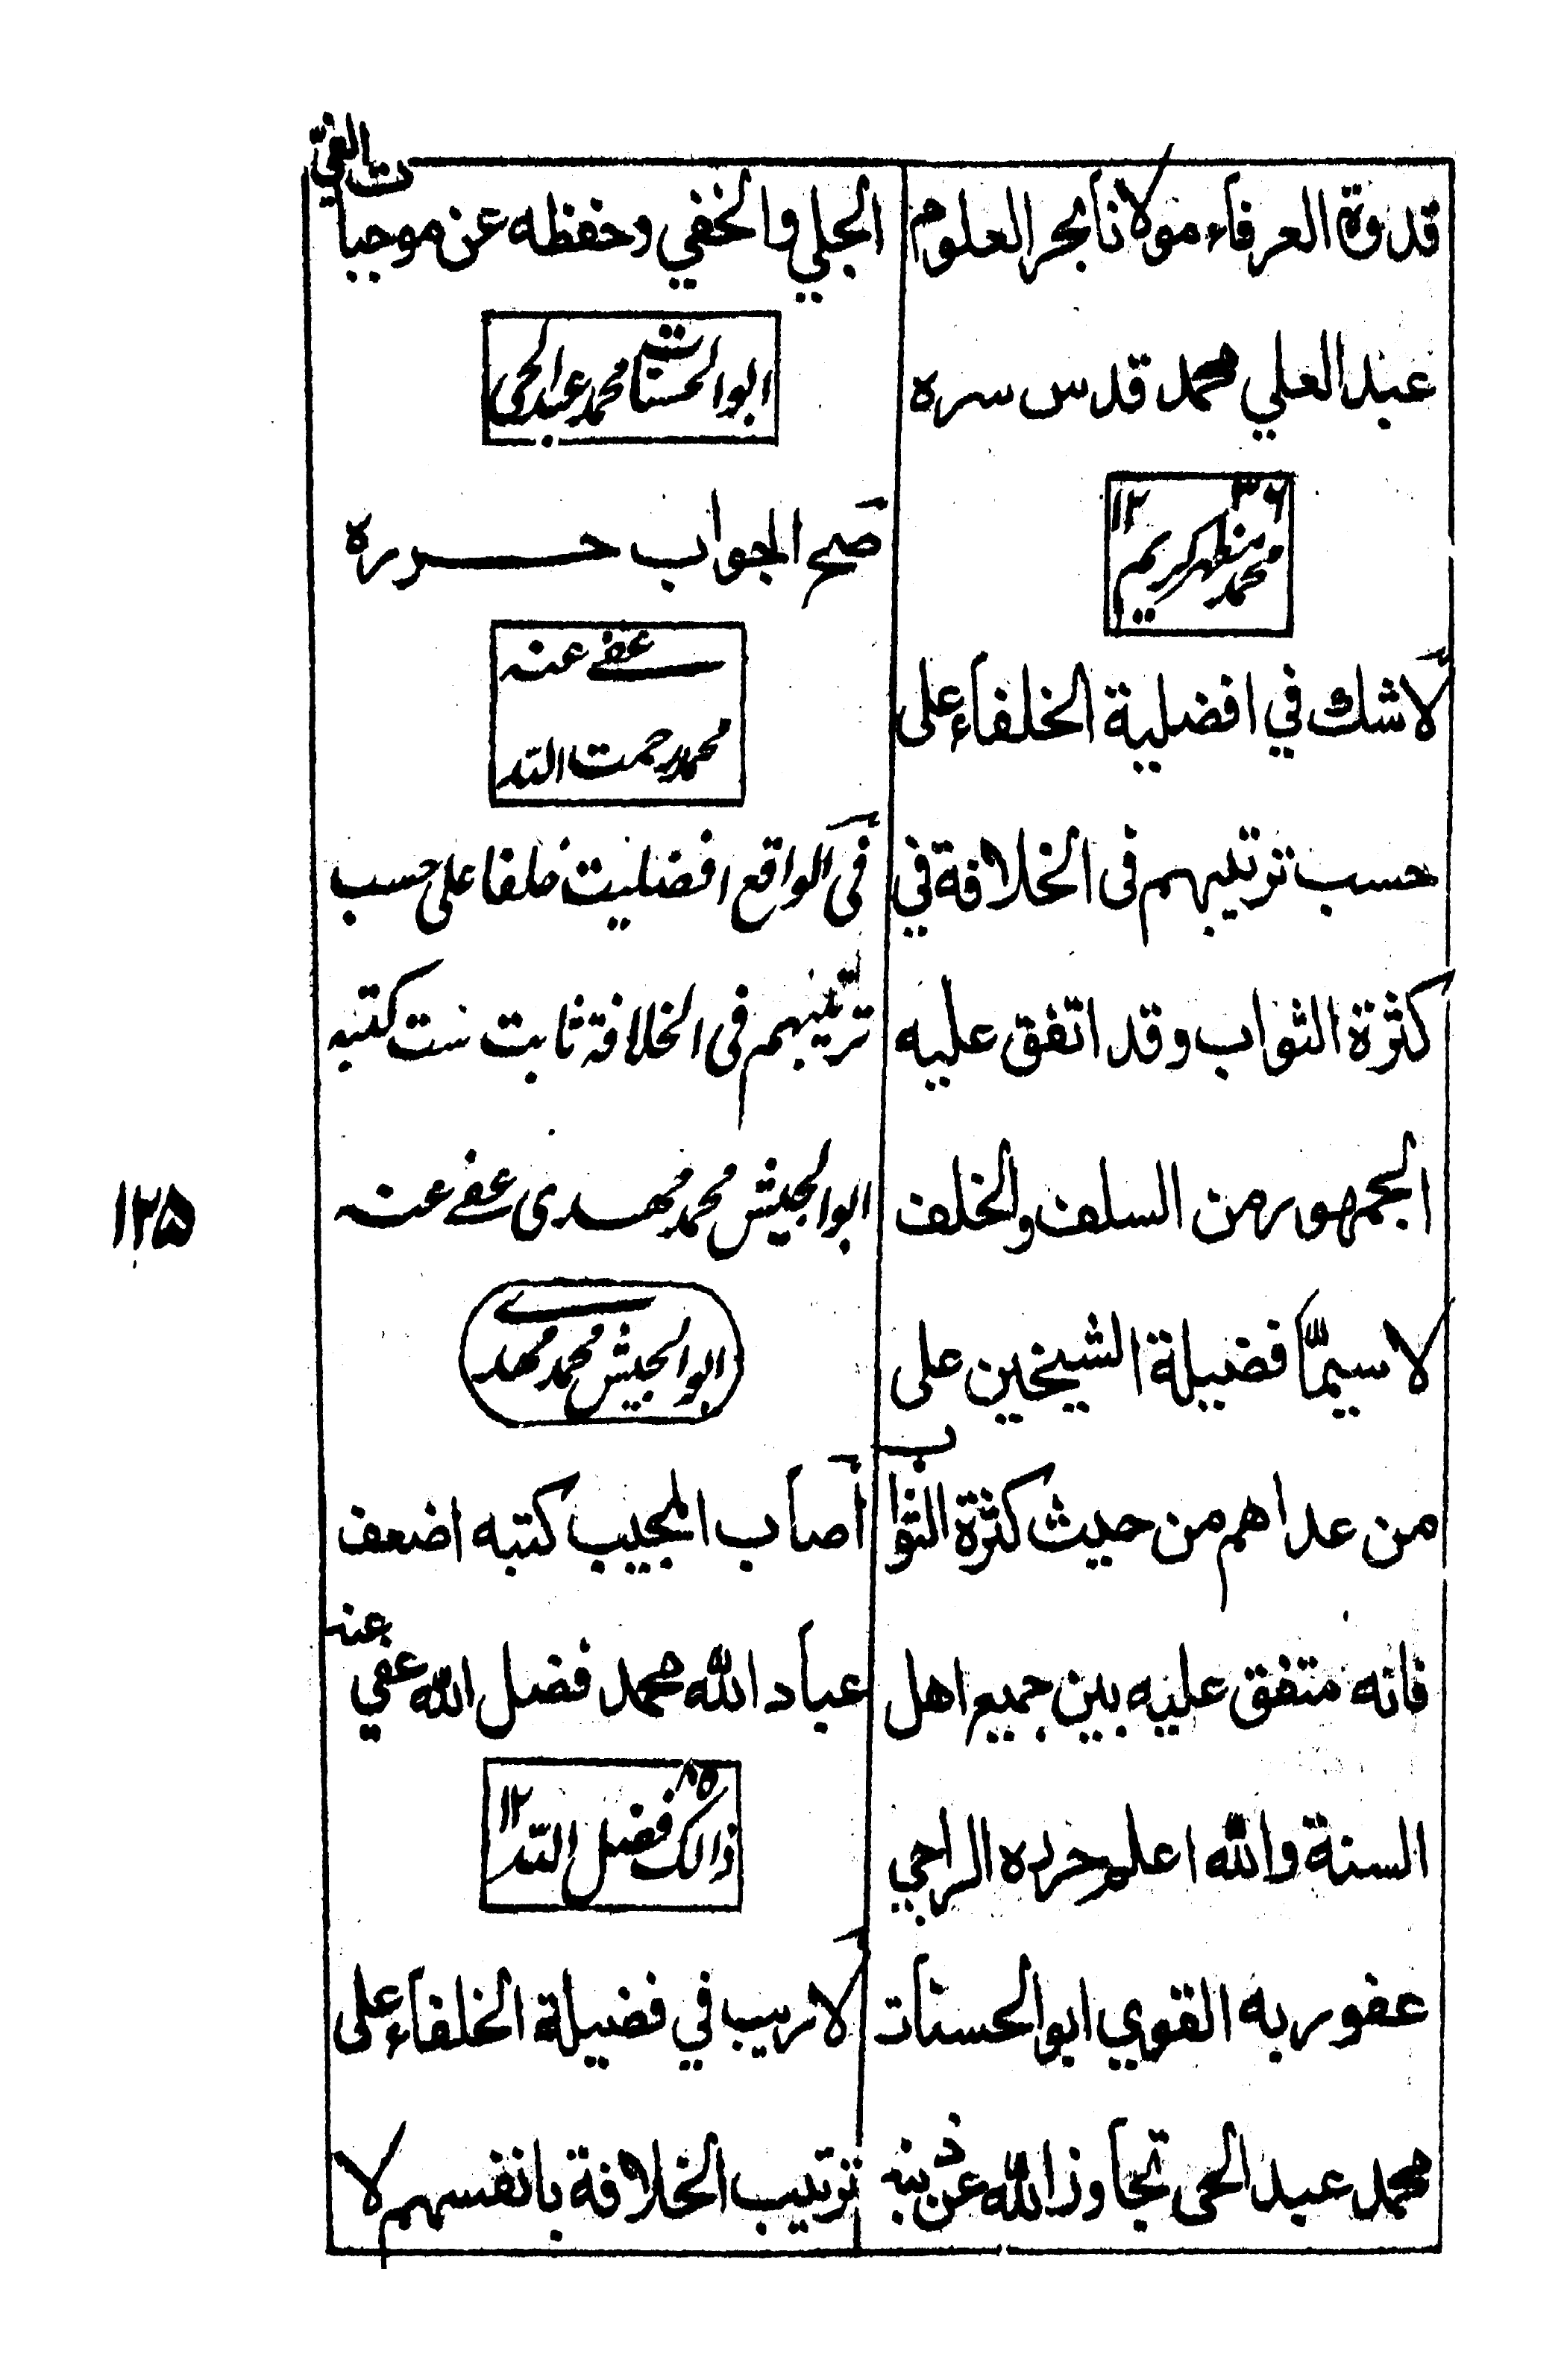 قدوة العرفاء مولانا بحر العلوم
عبد العلي محمد قدس سره
۱۲۳۶
محمد مظهر کریم
لا شك في افضلية الخلفاء على
حسب ترتيبهم فى الخلافة في
كثرة الثواب وقد اتفق عليه
الجمهور من السلف والخلف
لا سيمّا فضيلة الشيخين على
من عداهم من حيث كثرة الثواب
فانه متفق عليه بين جميع اهل
السنة والله اعلم حرره الراجي
عفو ربه القوي ابو الحسنات
محمد عبد الحى تجاوز الله عن ذنبه
الجلي والخفي وحفظه عن موجبات الغيّ
ابو الحسنات محمد عبد الحی
صح الجواب حرره
عفے عنہ
محمد رحمت اللہ
فی الواقع افضلیت خلفا علی حسب
ترتیبہم فی الخلافۃ ثابت ست کتبہ
ابو الجیش محمد مہدی عفے عنہ
ابو الجیش محمد مہدے
أصاب المجيب كتبه اضعف
عباد الله محمد فضل الله عفي عنه
۱۲۸۵
ذالک فضل اللہ
لا ريب في فضيلة الخلفاء على
ترتيب الخلافة بانفسهم لا
۱۲۵